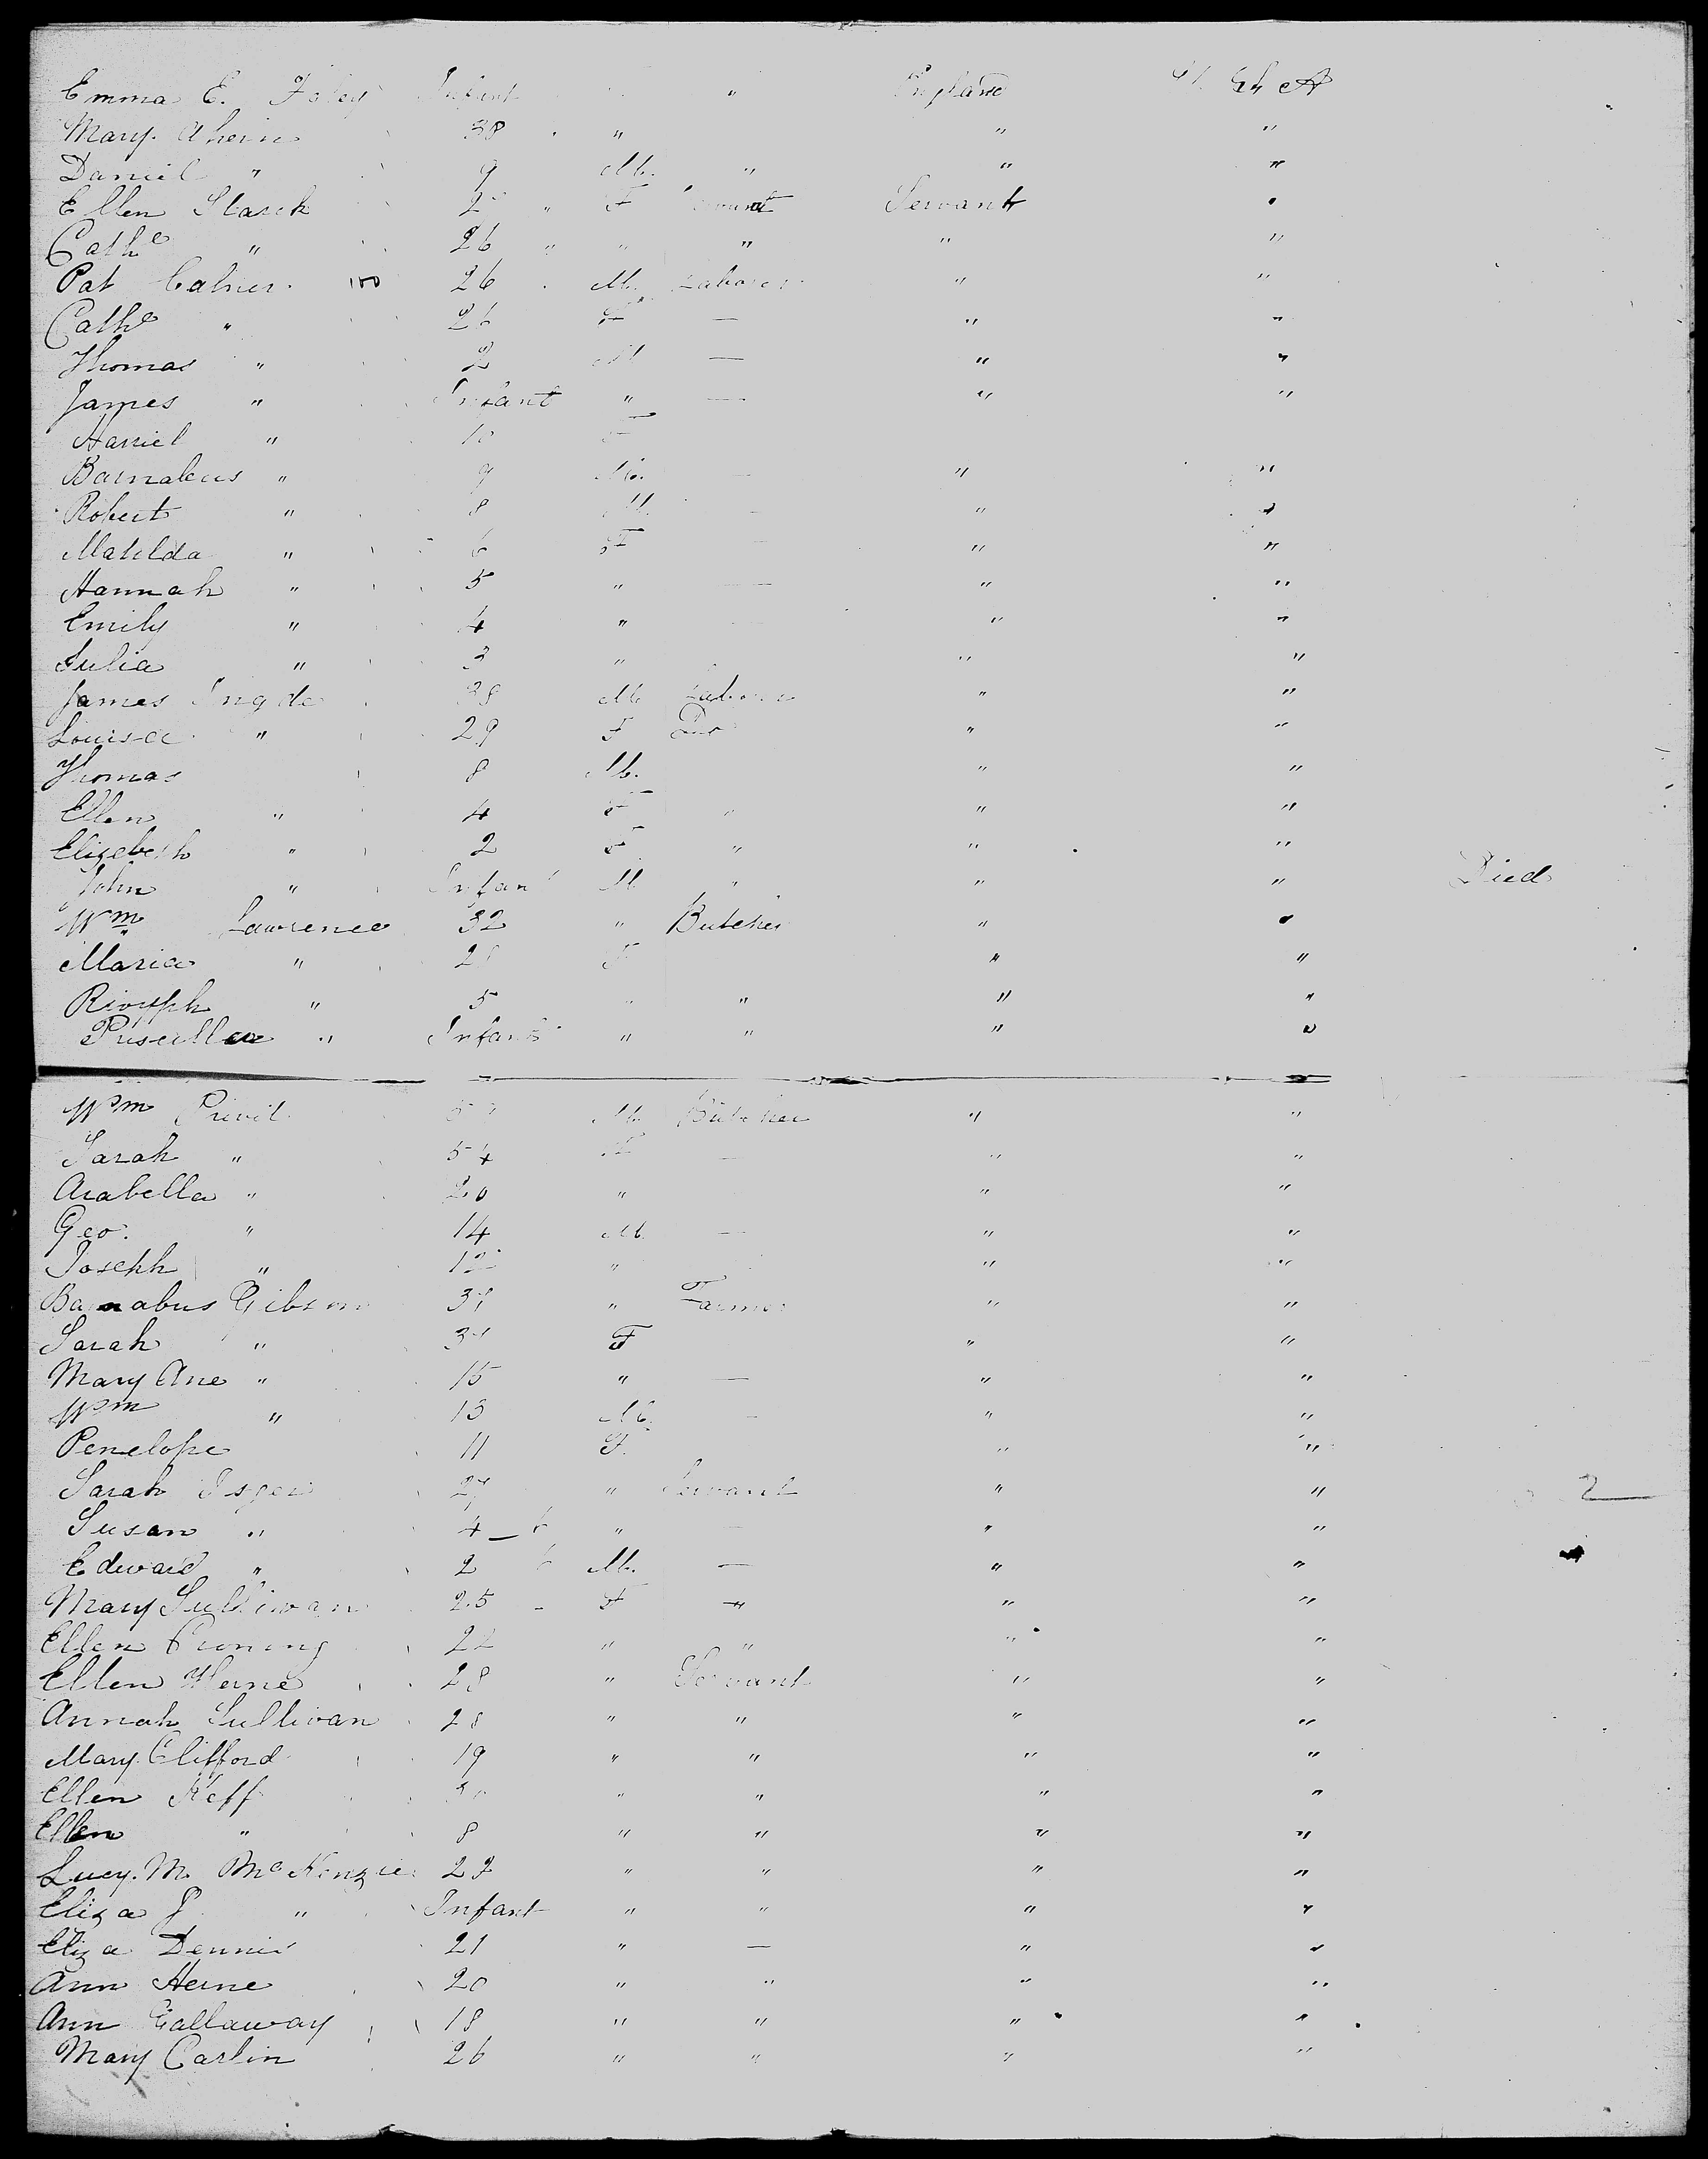 Emma E. Foley Infant " England U. S. A
Mary Ahern 38 " " "
Daniel " 9 M. " " "
Ellen Starck 2 " F Servant Servant "
Cathe " 26 " " " " "
Pat 26 M. Laborer " "
Cathe " 26 F — " "
Thomas " 2 M — " "
James " Infant " — " "
Harriel " 10 F
Barnabus " 9 M. — " "
Robert " 8 M. " "
Matilda " 6 F " "
Hannah " 5 " — " "
Emily " 4 " " "
Julia " 3 " " "
James 38 M Laborer " "
Louisa " 29 F Do " "
Thomas 8 M. " "
Ellen " 4 F " " "
Elizebeth " 2 F " " "
John " Infant M " " " Died
Wm Lawrence 32 " Butcher " "
Maria " 28 F " "
" 5 " " " "
Priscilla " Infant " " " "
Wm Privit M. Butcher " "
Sarah " 54 F — " "
Arabella " 20 " " "
Geo. " 14 M — " "
Joseph " 12 " " "
Barnabus Gibson 37 " Farmer " "
Sarah " 37 F " "
Mary Ane " 15 " — " "
Wm " 13 M. — " "
Penelope 11 F. " "
Sarah Isger 27 " Servant " " 2
Susan " 4 — 6 " — " "
Edward " 2 6 M. — " "
Mary Sullivan 25 F " " "
Ellen 22 " " " "
Ellen Herne 28 " Servant " "
Annah Sullivan 28 " " " "
Mary Clifford 19 " " " "
Ellen Keff 30 " " " "
Ellen " 8 " " " "
Lucy. M. McKenzie 22 " " " "
Eliza J " Infant " " " "
Eliza Dennis 21 " — " "
Ann Herne 20 " " " "
Ann Gallaway 18 " " " "
Mary Carlin 26 " " " "